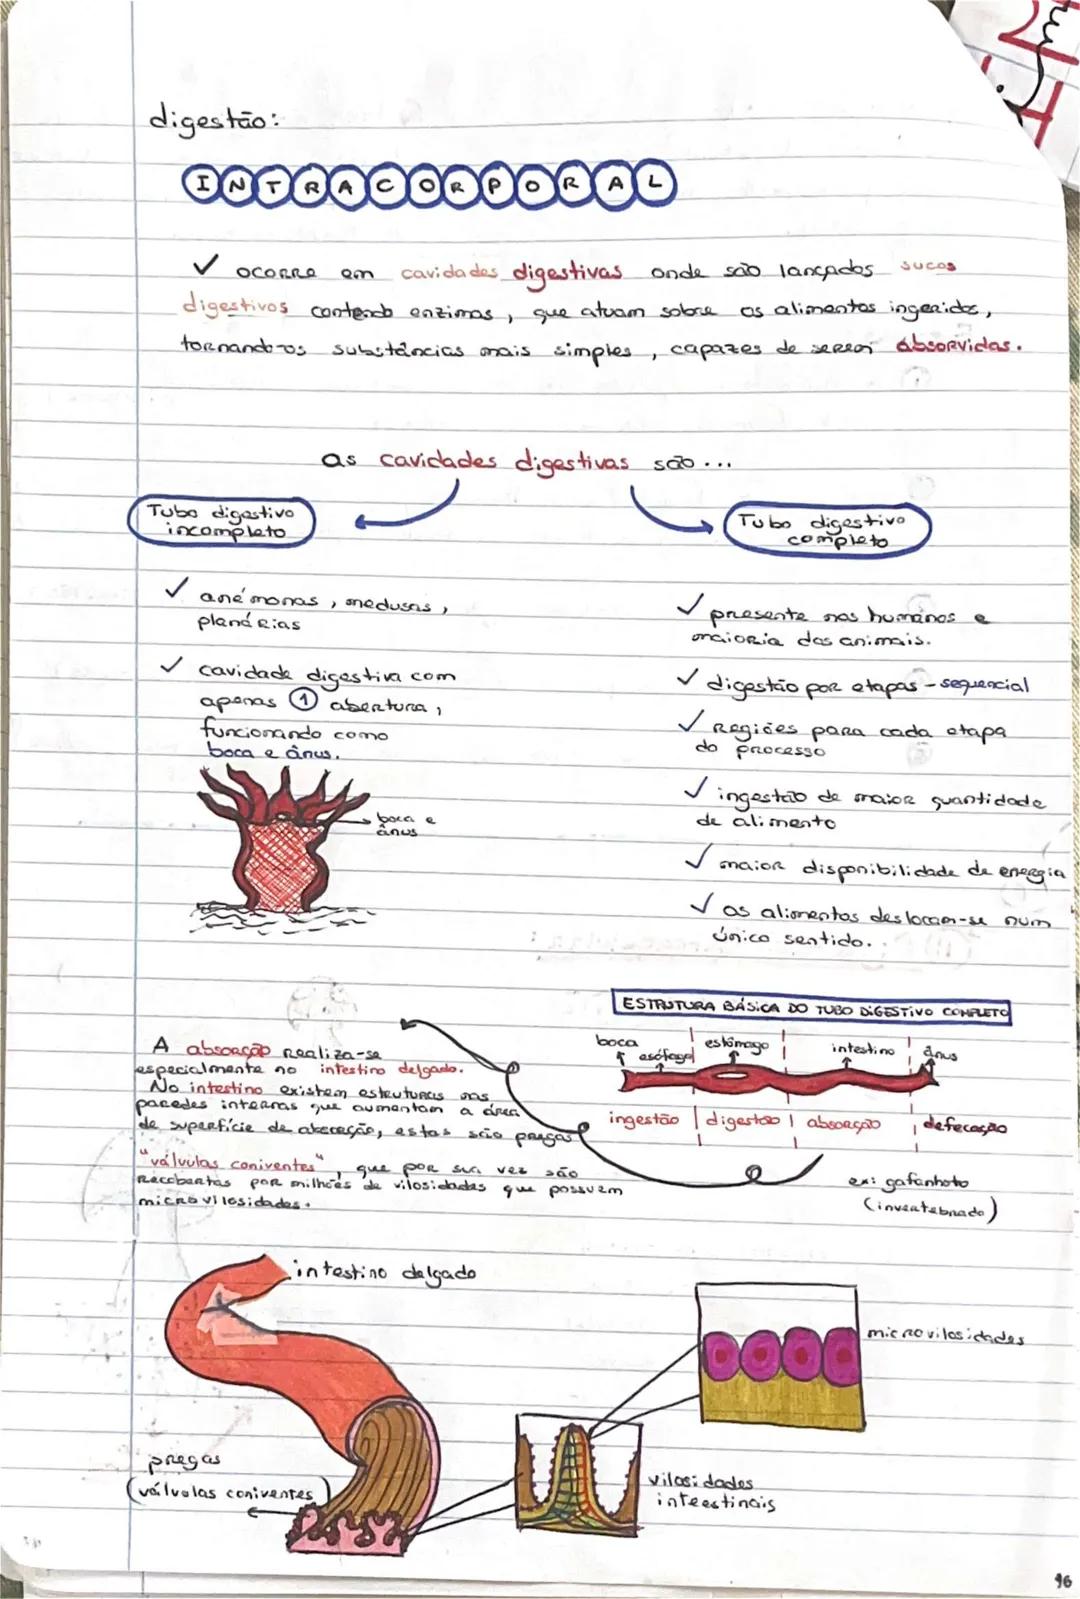 digestão:
INTRACORPORAL
✓ ocorre em cavidades digestivas onde são lançados sucos
digestivos contendo enzimas, que atuam sobre os alimentos ingeridos,
tornando-os substâncias mais simples, capazes de serem absorvidas.
as cavidades digestivas são...
Tubo digestivo
incompleto
✓ anémonas, medusas,
planárias
✓ cavidade digestiva com
apenas 1 abertura,
funcionando como
boca e ânus.
boca e
ânus
Tubo digestivo
completo
✓ presente nos humanos e
maioria dos animais.
✓ digestão por etapas - sequencial
✓ regiões para cada etapa
do processo
✓ ingestão de maior quantidade
de alimento
✓ maior disponibilidade de energia
✓ os alimentos deslocam-se num
único sentido.
ESTRUTURA BÁSICA DO TUBO DIGESTIVO COMPLETO
boca esófago estômago intestino ânus
ingestão digestão absorção defecação
ex: gafanhoto
(invertebrado)
A absorção realiza-se
especialmente no intestino delgado.
No intestino existem estruturas nas
paredes internas que aumentam a área
de superfície de absorção, estas são pregas
"válvulas coniventes", que por sua vez são
recobertas por milhões de vilosidades que possuem
microvilosidades.
intestino delgado
microvilosidades
pregas
(válvulas coniventes)
vilosidades
inteestinais
96